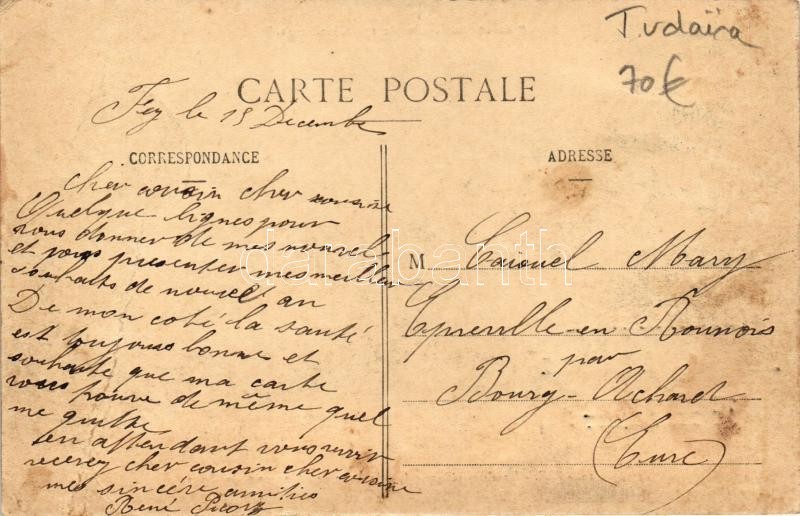 T. vdaïra
70€
CARTE POSTALE
Fez le 18 Decembre
CORRESPONDANCE
cher cousin cher cousine
Quelque lignes pour
vous donner de mes nouvel-
et vous presenter mes meilleur
souhaits de nouvel an
De mon coté la santé
est toujours bonne et
souhaite que ma carte
vous trouve de même quel
me quitte
en attendant vous
recevez cher cousin cher cousine
mes sincére amities
René
ADRESSE
M Mary
Epreville-en-Roumois
par
Bourg-Achard
(Eure)
darabanth